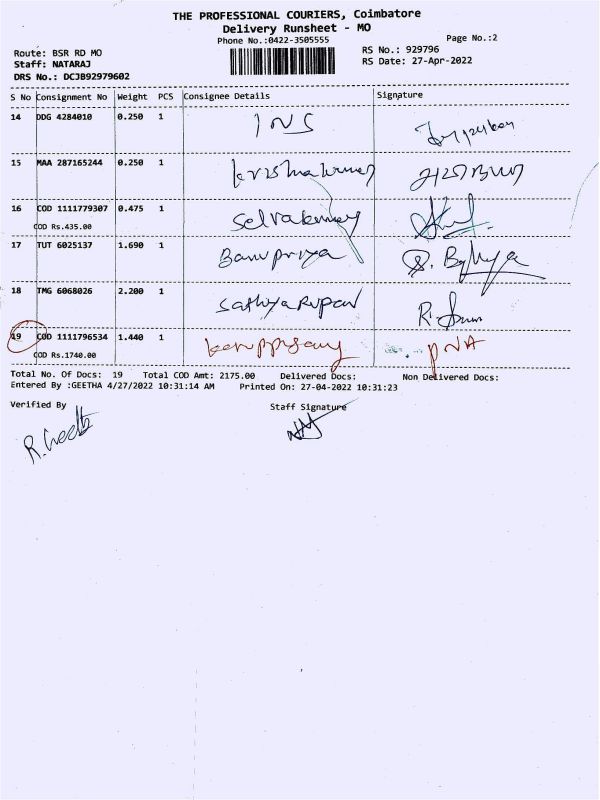 THE PROFESSIONAL COURIERS, Coimbatore
Delivery Runsheet - MO
Phone No.:0422-3505555
Page No.:2
Route: BSR RD MO
RS No.: 929796
Staff: NATARAJ
RS Date: 27-Apr-2022
DRS No.: DCJB92979602
S No Consignment No Weight PCS Consignee Details Signature
14 DDG 4284010 0.250 1 INS
15 MAA 287165244 0.250 1 krishnakumar
16 COD 1111779307 0.475 1 Selvakumar
COD Rs.435.00
17 TUT 6025137 1.690 1 Banupriya
18 TMG 6068026 2.200 1 Sathyarupan
19 COD 1111796534 1.440 1 karuppusamy PNA
COD Rs.1740.00
Total No. Of Docs: 19 Total COD Amt: 2175.00 Delivered Docs: Non Delivered Docs:
Entered By :GEETHA 4/27/2022 10:31:14 AM Printed On: 27-04-2022 10:31:23
Verified By Staff Signature
R. Geetha